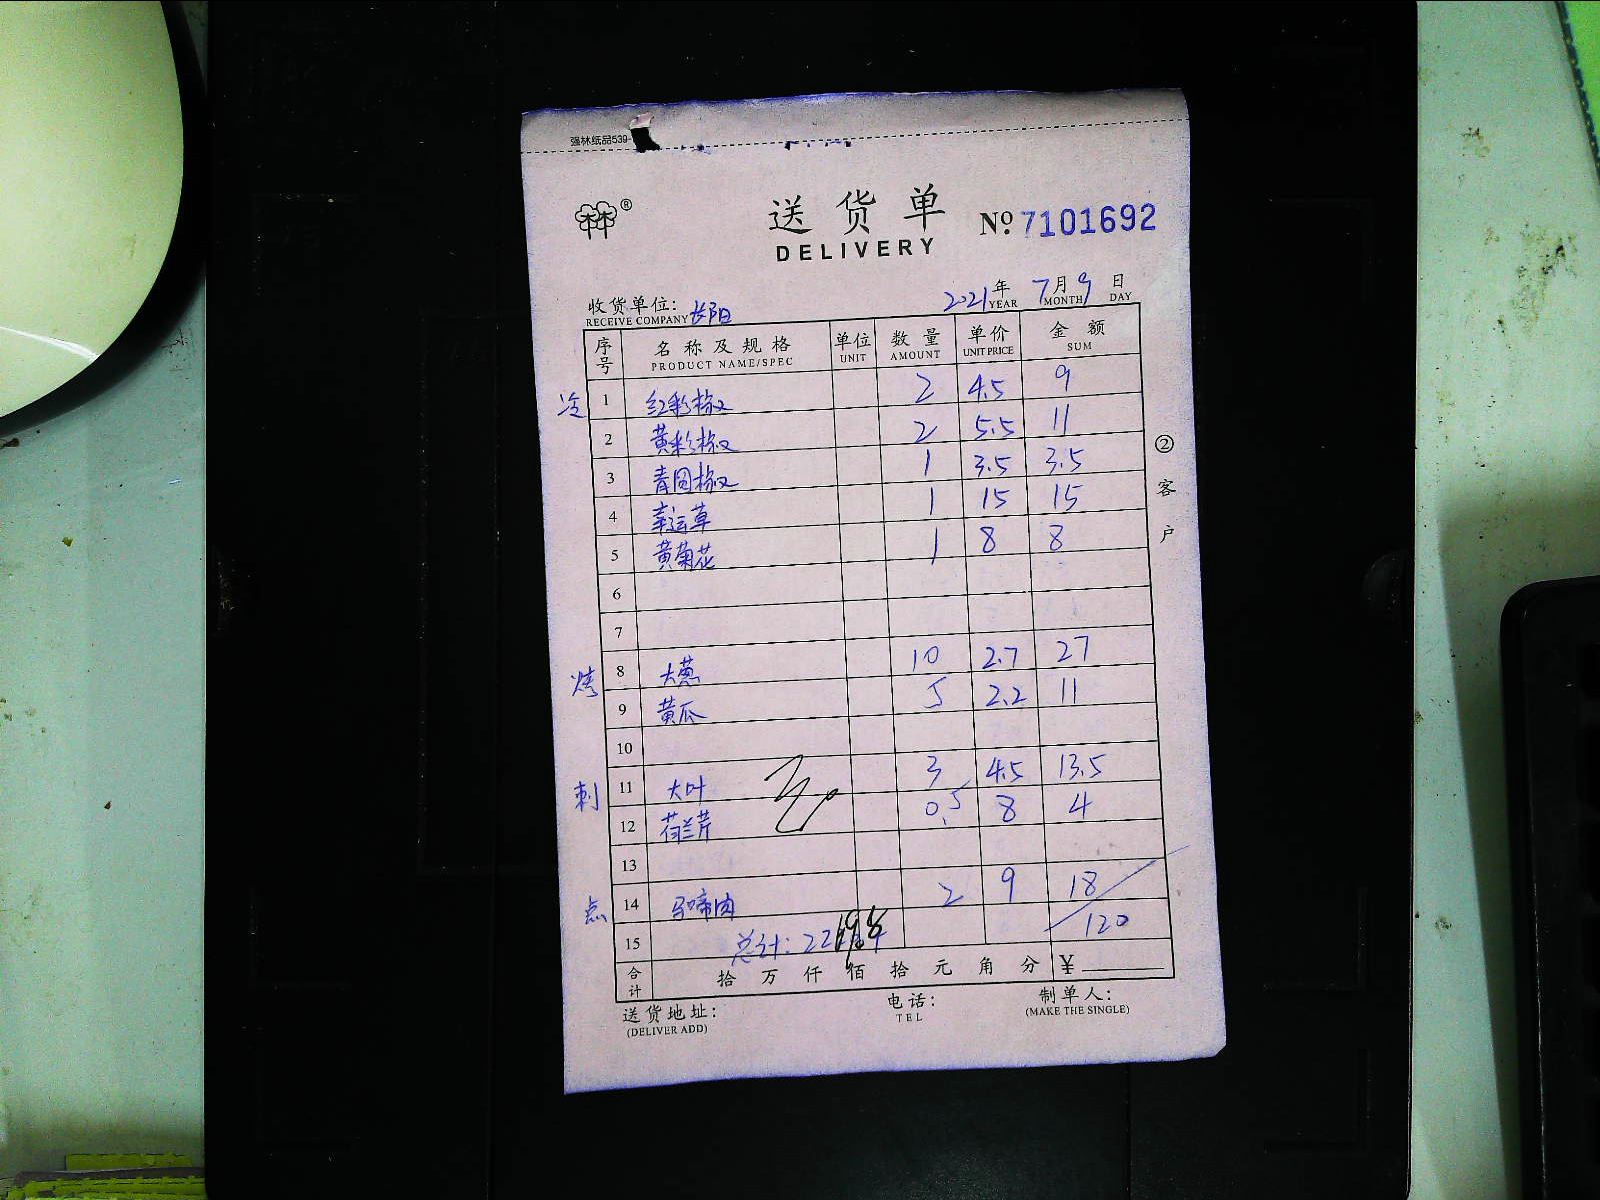 强林纸品539-
®
送货单 №7101692
DELIVERY
收货单位: 长阳 2021年 7月9日
RECEIVE COMPANY YEAR MONTH DAY
序号 名称及规格 单位 数量 单价 金额
PRODUCT NAME/SPEC UNIT AMOUNT UNIT PRICE SUM
冷 1 红彩椒 2 4.5 9
2 黄彩椒 2 5.5 11
3 青圆椒 1 3.5 3.5
4 幸运草 1 15 15
5 黄菊花 1 8 8
6
7
烤 8 大葱 10 2.7 27
9 黄瓜 5 2.2 11
10
刺 11 大叶 3 4.5 13.5
12 荷兰芹 0.5 8 4
13
点 14 马啼肉 2 9 18
15 总计: 120
合计 拾万仟佰拾元角分 ¥
送货地址: 电话: 制单人:
(DELIVER ADD) TEL (MAKE THE SINGLE)
②客户